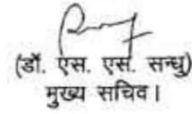 (डॉ. एस. एस. सन्धु)
मुख्य सचिव।